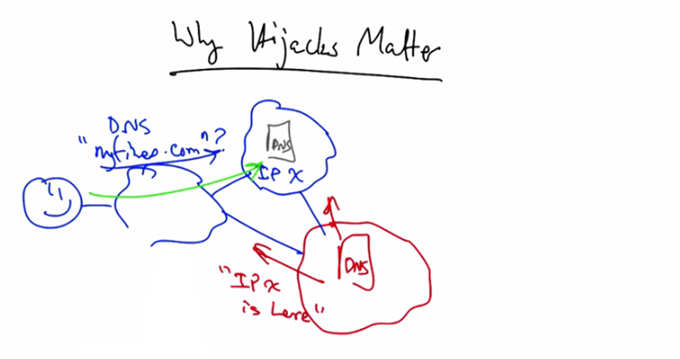 Why Hijacks Matter
DNS
"nytimes.com"?
DNS
IP X
DNS
"IP X
is here"